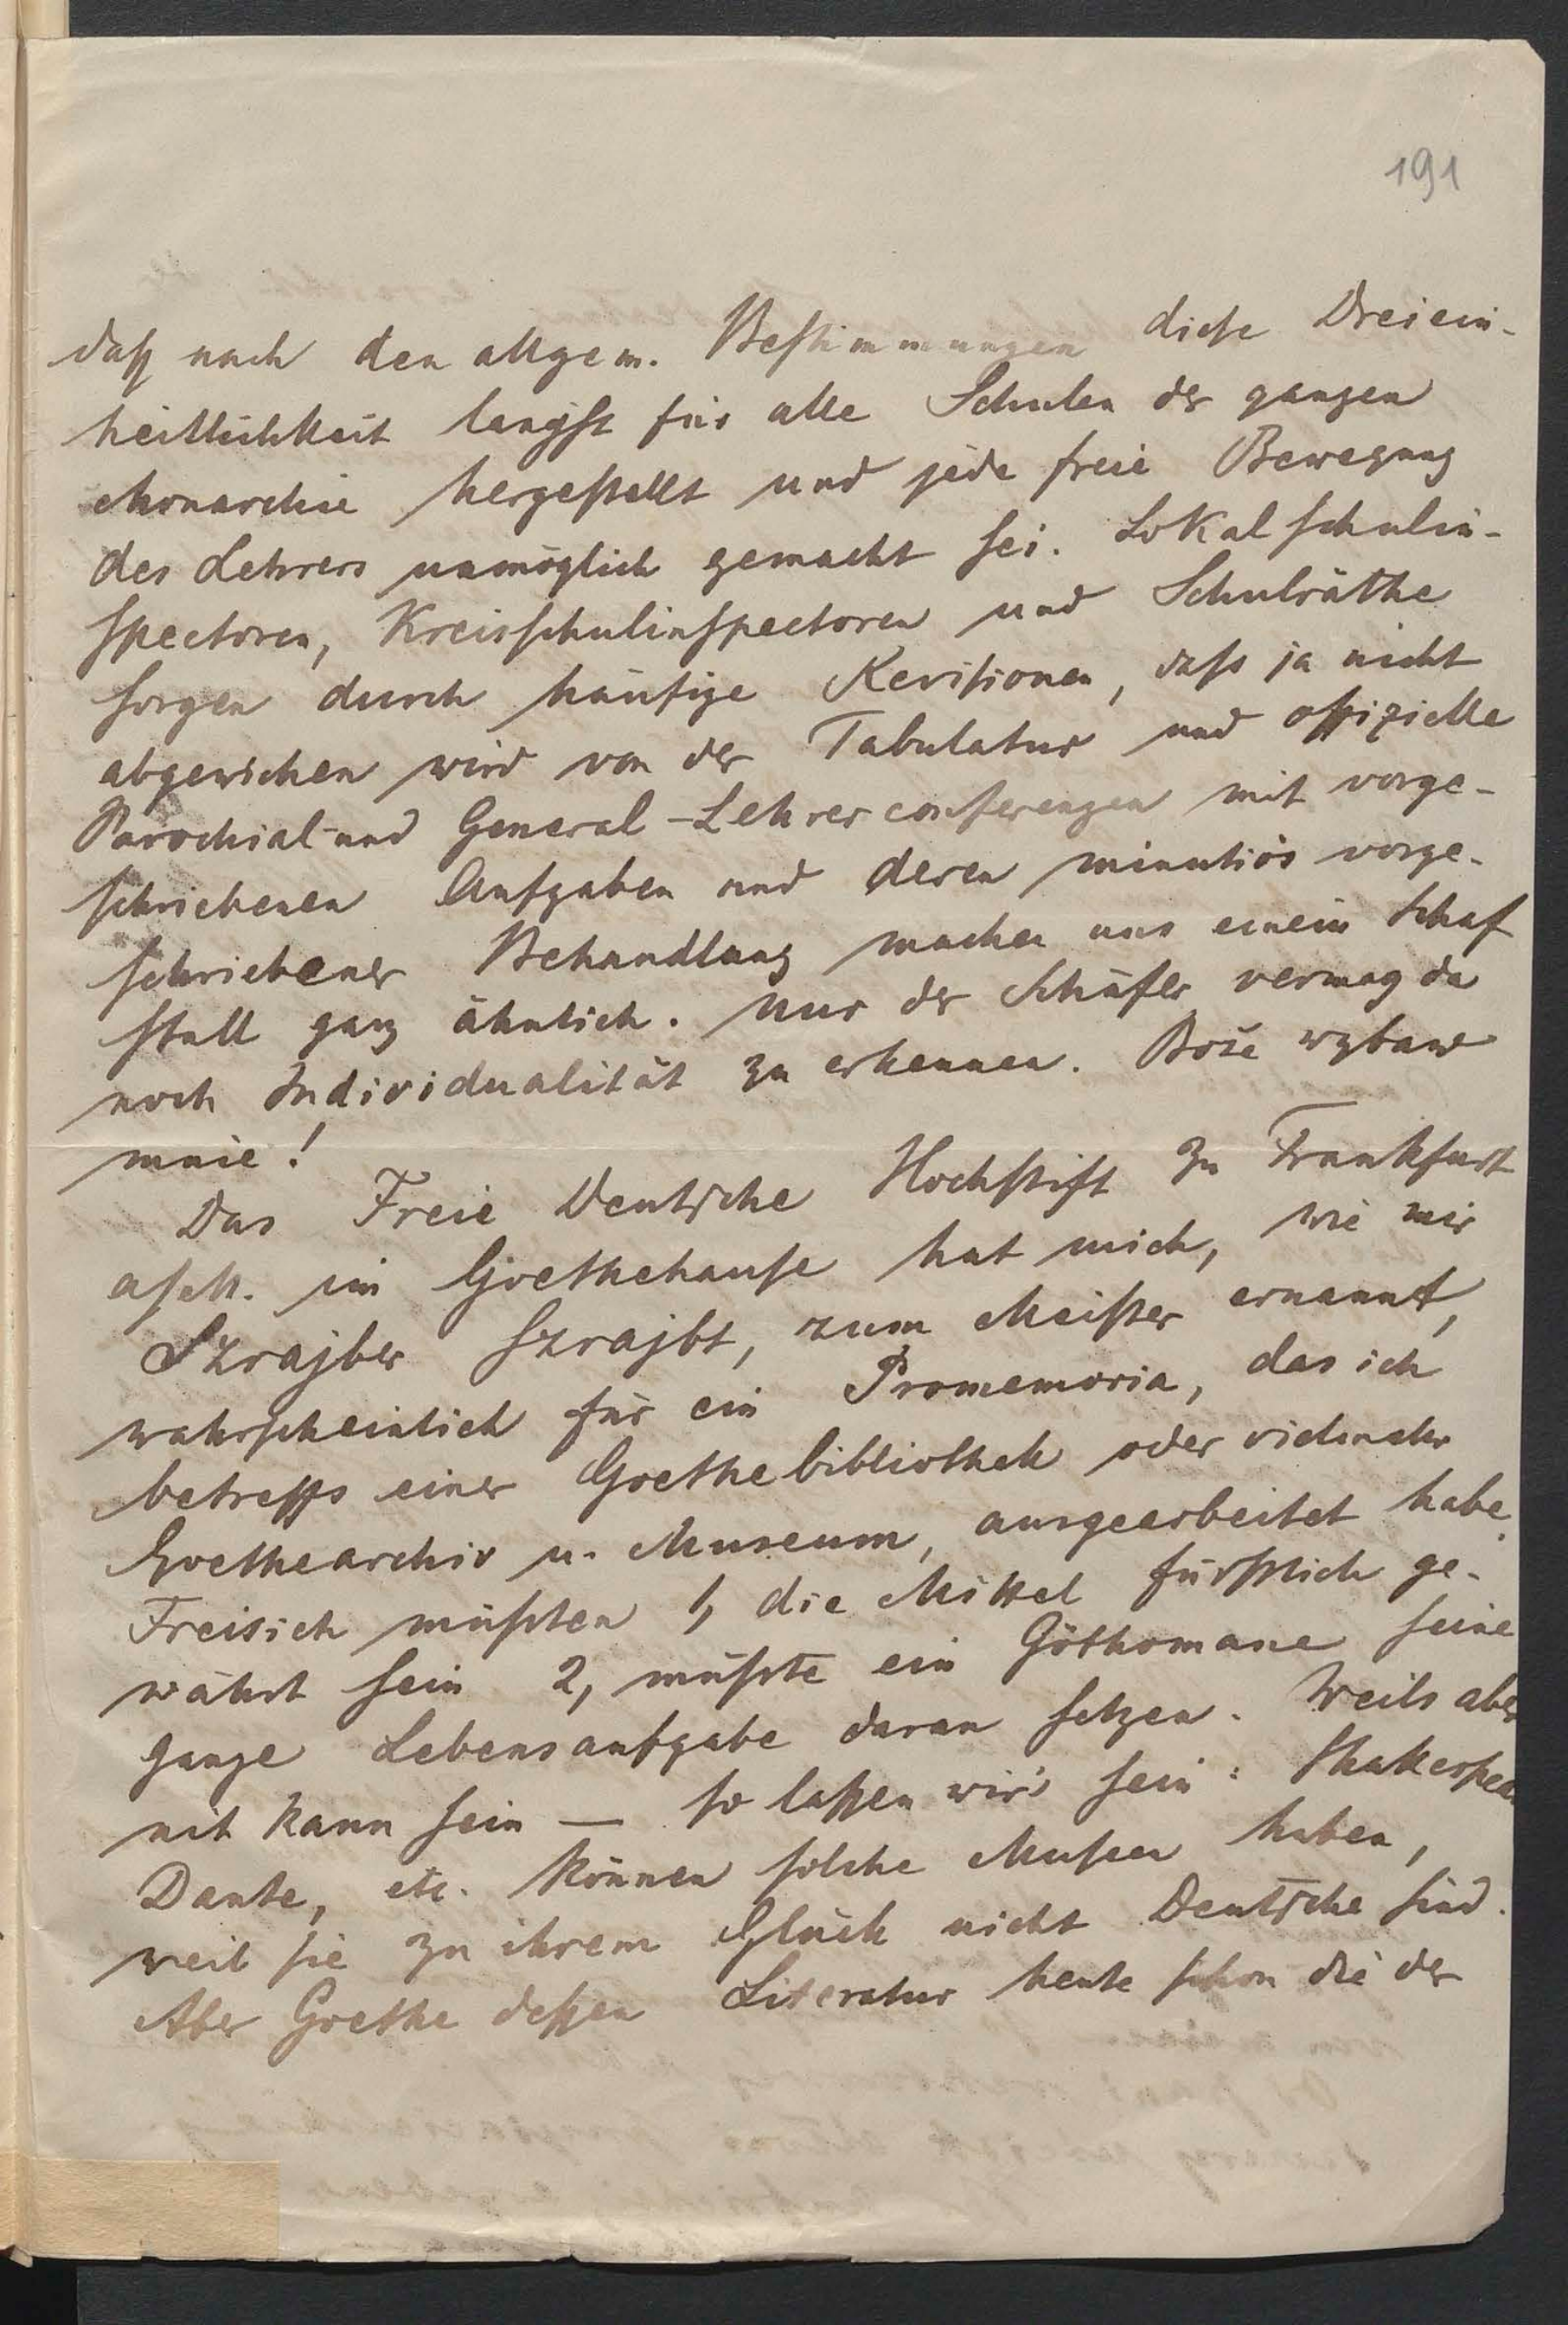 191
daß nach den allgem. Bestimmungen diese Dreiein-
heitlichkeit längst für alle Schulen der ganzen
Monarchie hergestellt und jede freie Bewegung
des Lehrers unmöglich gemacht sei. Lokalschulin-
spectoren, Kreisschulinspectoren und Schulräthe
sorgen durch häufige Revisionen, dass ja nicht
abgewichen wird von der Tabulatur und offizielle
Parochial- und General-Lehrerconferenzen mit vorge-
schriebenen Aufgaben und deren minutiös vorge-
schriebener Behandlung machen uns einem Schaf
stall ganz ähnlich. Nur der Schäfer vermag da
noch Individualität zu erkennen. Boże wybaw
mnie!
Das Freie Deutsche Hochstift zu Frankfurt
a/M. im Goethehause hat mich, wie mir
Szrajber szrajbt, zum Meister ernannt,
wahrscheinlich für ein Promemoria, das ich
betreffs einer Goethebibliothek oder vielmehr
Goethearchiv u. Museum, ausgearbeitet habe.
Freisich müßten 1, die Mittel fürstlich ge-
währt sein 2, müßte ein Göthomane seine
ganze Lebensaufgabe daran setzen. Weils aber
nit kann sein — so laßen wir's sein: Shakespea
Dante, etc. können solche Museen haben,
weil sie zu ihrem Glück nicht Deutsche sind.
Aber Goethe deßen Literatur heute schon die der